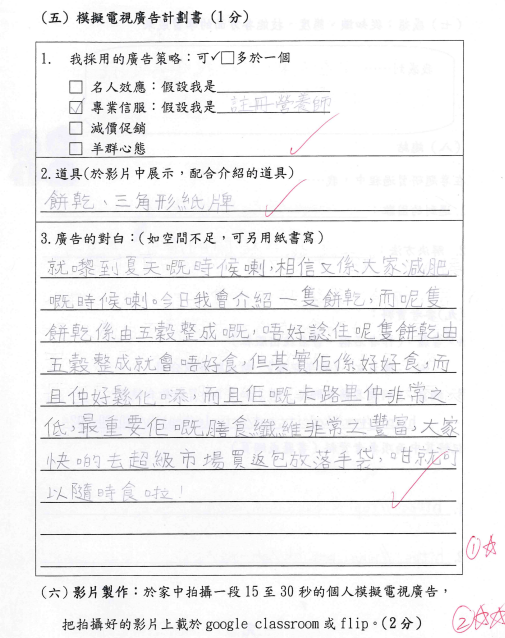 (五) 模擬電視廣告計劃書 (1 分)
1. 我採用的廣告策略：可✓□多於一個
□ 名人效應：假設我是
☑ 專業信服：假設我是 註冊營養師
□ 減價促銷
□ 羊群心態
2.道具(於影片中展示，配合介紹的道具)
餅乾、三角形紙牌
3.廣告的對白：(如空間不足，可另用紙書寫)
就嚟到夏天嘅時候喇，相信又係大家減肥
嘅時候喇。今日我會介紹一隻餅乾，而呢隻
餅乾係由五穀整成嘅，唔好諗住呢隻餅乾由
五穀整成就會唔好食，但其實佢係好好食，而
且仲好鬆化㗎，而且佢嘅卡路里仲非常之
低，最重要佢嘅膳食纖維非常之豐富，大家
快啲去超級市場買返包放落手袋，咁就可
以隨時食啦！
①☆
(六) 影片製作：於家中拍攝一段 15 至 30 秒的個人模擬電視廣告，
把拍攝好的影片上載於 google classroom 或 flip。(2 分)
②☆☆